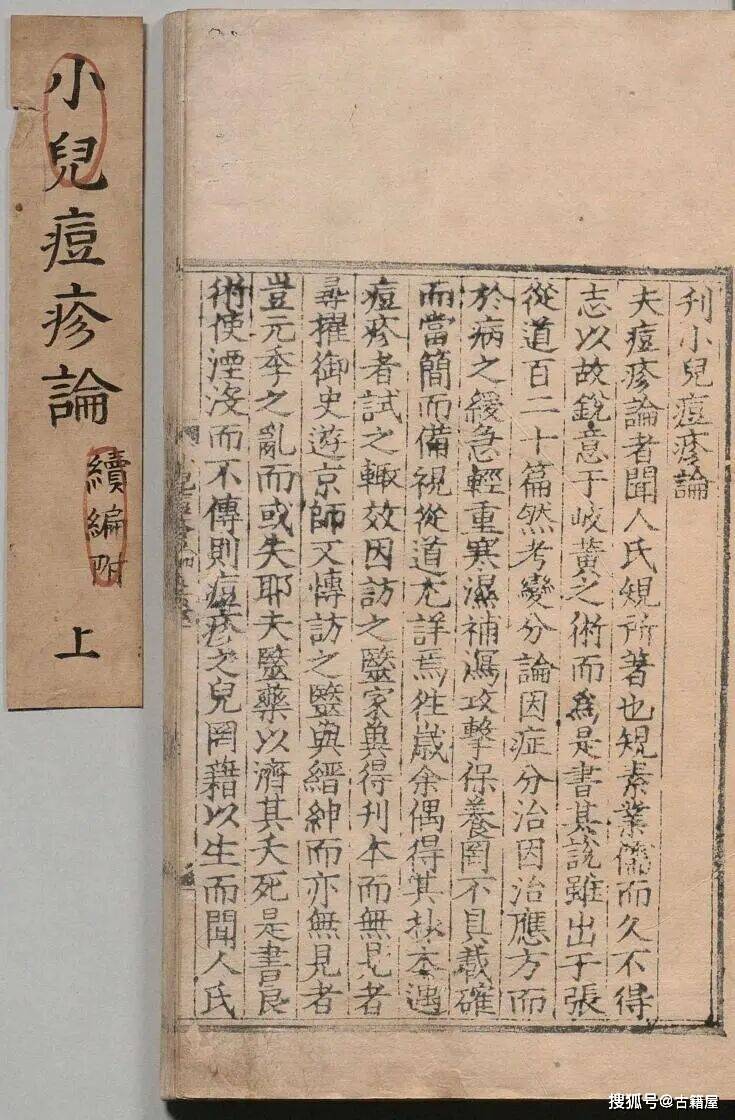 小兒痘疹論
續編附
上
刊小兒痘疹論
夫痘疹論者聞人氏規所著也規素業儒而久不得
志以故銳意于岐黃之術而爲是書其說雖出于張
從道百二十篇然考變分論因症分治因治應方而
於病之緩急輕重寒濕補瀉攻擊保養罔不具載確
而當簡而備視從道尤詳焉徃歲余偶得其抄本遇
痘疹者試之輙效因訪之毉家兾得刊本而無見者
尋擢御史遊京師又慱訪之毉與縉紳而亦無見者
豈元季之亂而或失耶夫毉藥以濟其夭死是書良
術使湮沒而不傳則痘疹之兒罔藉以生而聞人氏
搜狐号@古籍屋